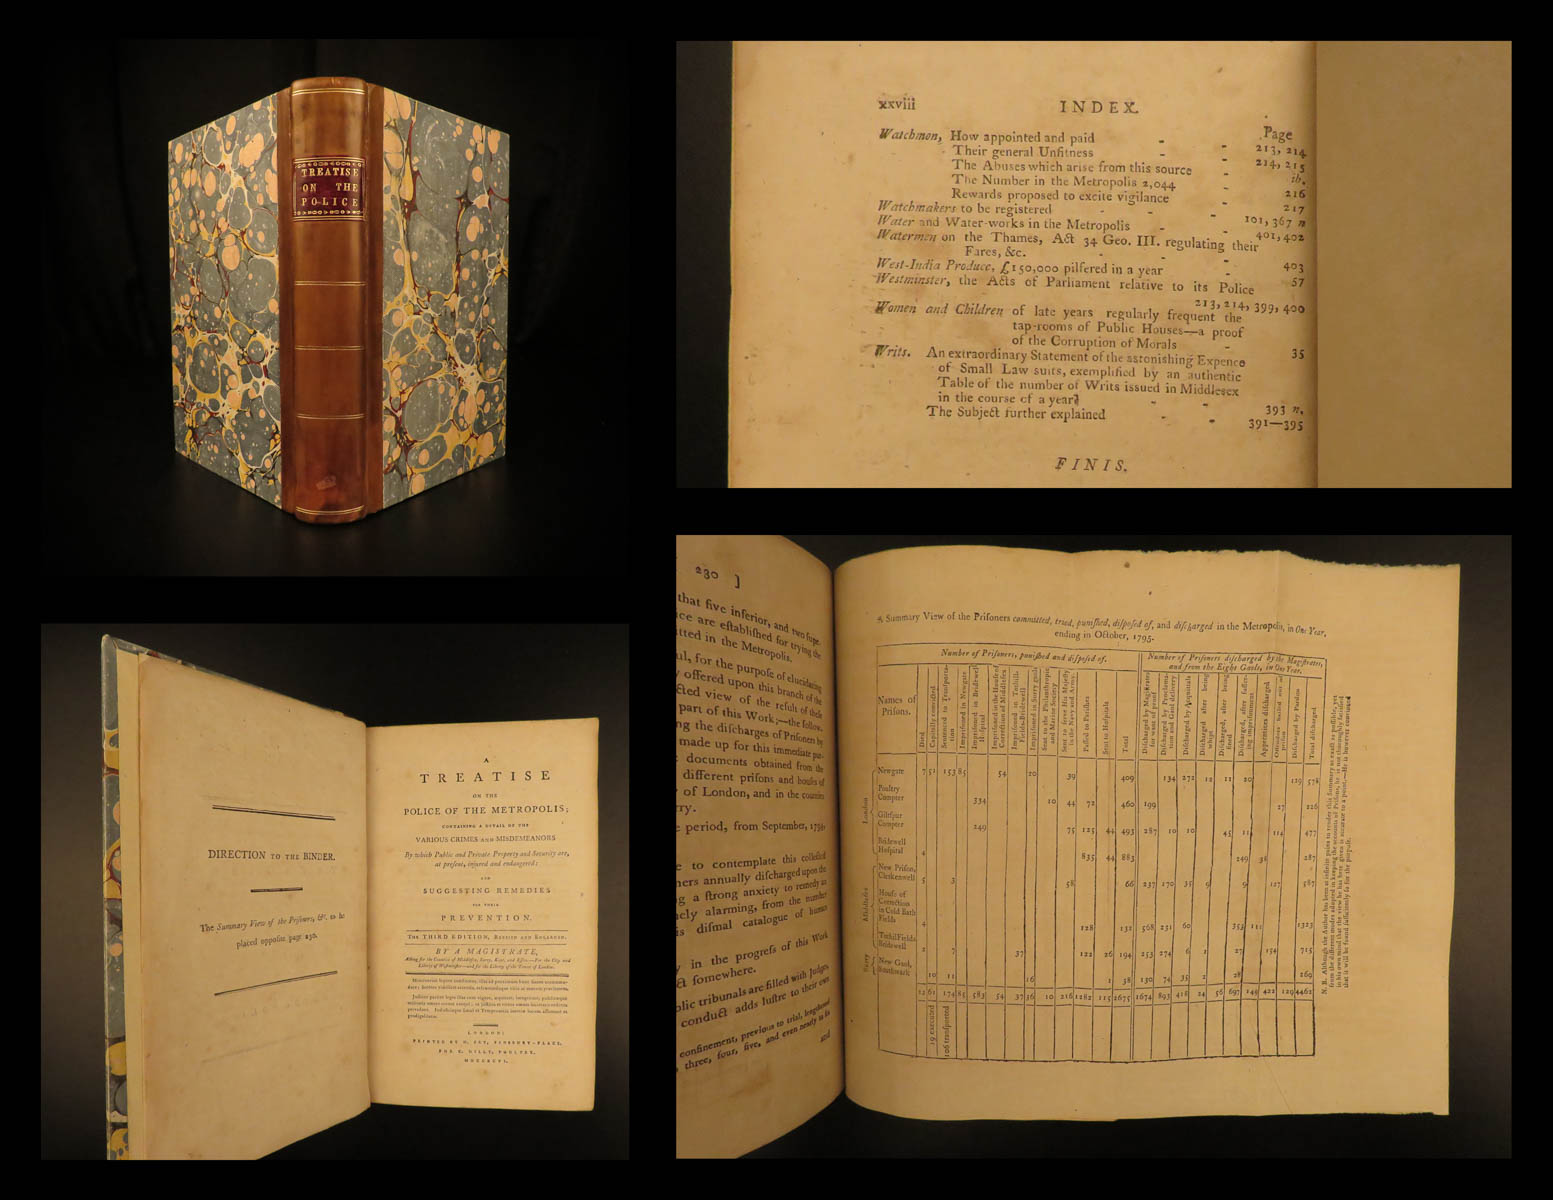 TREATISE
ON THE
POLICE
xxviii INDEX.
Page
Watchmen, How appointed and paid - 213, 214
Their general Unfitness - 214, 215
The Abuses which arise from this source - ib.
The Number in the Metropolis 2,044 - 216
Rewards proposed to excite vigilance - 217
Watchmakers to be registered - - -
Water and Water-works in the Metropolis - 101, 367 n
Watermen on the Thames, Act 34 Geo. III. regulating their 401, 402
Fares, &c. - - 403
West-India Produce, £150,000 pilfered in a year - 57
Westminster, the Acts of Parliament relative to its Police
213, 214, 399, 400
Women and Children of late years regularly frequent the
tap-rooms of Public Houses—a proof
of the Corruption of Morals - 35
Writs. An extraordinary Statement of the astonishing Expence
of Small Law suits, exemplified by an authentic
Table of the number of Writs issued in Middlesex
in the course of a year - - 393 n.
The Subject further explained - - 391—395
FINIS.
DIRECTION TO THE BINDER.
The Summary View of the Prisoners, &c. to be
placed opposite page 230.
A
TREATISE
ON THE
POLICE OF THE METROPOLIS;
CONTAINING A DETAIL OF THE
VARIOUS CRIMES AND MISDEMEANORS
By which Public and Private Property and Security are,
at present, injured and endangered:
AND
SUGGESTING REMEDIES
FOR THEIR
PREVENTION.
THE THIRD EDITION, REVISED AND ENLARGED.
BY A MAGISTRATE,
Acting for the Counties of Middlesex, Surry, Kent, and Essex.—For the City and
Liberty of Westminster—and for the Liberty of the Tower of London.
LONDON:
PRINTED BY H. FRY, FINSBURY-PLACE,
FOR C. DILLY, POULTRY.
MDCCXCVI.
230 ]
that five inferior, and two supe-
are established for trying the
in the Metropolis.
for the purpose of elucidating
offered upon this branch of the
view of the result of these
part of this Work;—the follow-
the discharges of Prisoners by
made up for this immediate pur-
documents obtained from the
different prisons and houses of
of London, and in the counties
period, from September, 1794,
to contemplate this collected
annually discharged upon the
a strong anxiety to remedy an
alarming, from the number
dismal catalogue of human
in the progress of this Work
somewhere.
tribunals are filled with Judges,
conduct adds lustre to their own
confinement, previous to trial, lengthened
three, four, five, and even nearly to six
and
A Summary View of the Prisoners committed, tried, punished, disposed of, and discharged in the Metropolis, in One Year,
ending in October, 1795.
Number of Prisoners, punished and disposed of.
Number of Prisoners discharged by the Magistrates,
and from the Eight Gaols, in One Year.
Names of
Prisons.
Died
Capitally convicted.
Sentenced to Transportation
Imprisoned in Newgate
Imprisoned in Bridewell Hospital
Imprisoned in the House of Correction of Middlesex
Imprisoned in Tothill-Fields-Bridewell
Imprisoned in Surry gaols
Sent to the Philanthropic and Marine Society
Sent to serve His Majesty in the Navy and Army.
Passed to Parishes
Sent to Hospitals
Total
Discharged by Magistrates for want of proof
Discharged by Proclamation and Gaol delivery
Discharged by Acquittals
Discharged after being whipt
Discharged, after being fined
Discharged, after suffering imprisonment
Apprentices discharged
Discharged by Pardon
Total discharged
London
Newgate 7 51 153 85 54 20 39 409 134 272 12 11 20 129 578
Poultry
Compter 334 10 44 72 460 199 27 226
Giltspur
Compter 249 75 125 44 493 287 10 10 45 11 114 477
Bridewell
Hospital 4 835 44 883 249 38 287
Middlesex
New Prison,
Clerkenwell 5 3 58 66 237 170 35 9 9 127 587
House of
Correction
in Cold Bath
Fields 4 128 132 568 231 60 353 111 1323
Tothil Fields
Bridewell 2 7 37 122 26 194 253 274 6 2 27 154 715
Surry
New Gaol,
Southwark 10 11 16 1 38 130 74 35 2 28 269
19 executed
106 transported
N. B. Although the Author has been at infinite pains to render this Summary as exact as possible, yet
from the different modes adopted in keeping the accounts of Prisons, he is not thoroughly satisfied
in his own mind that the view he has here given is accurate to a point.—He is however convinced
that it will be found sufficiently so for the purpose.